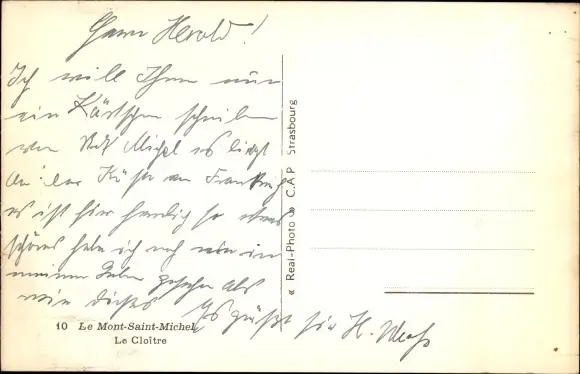 Herrn Herold!
Ich will Ihnen nun
ein Kärtchen schreiben
von St Michel es liegt
an der Küste von Frankreich
es ist hier herrlich so etwas
schönes habe ich noch nie in
meinem Leben gesehen als
wie dieses
Es grüßt sie H. Weiß
10 Le Mont-Saint-Michel
Le Cloître
« Real-Photo » C.A.P. Strasbourg